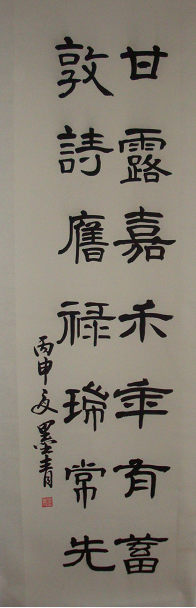 甘露嘉禾年有蓄
敦詩膺禄瑞常先
丙申墨青